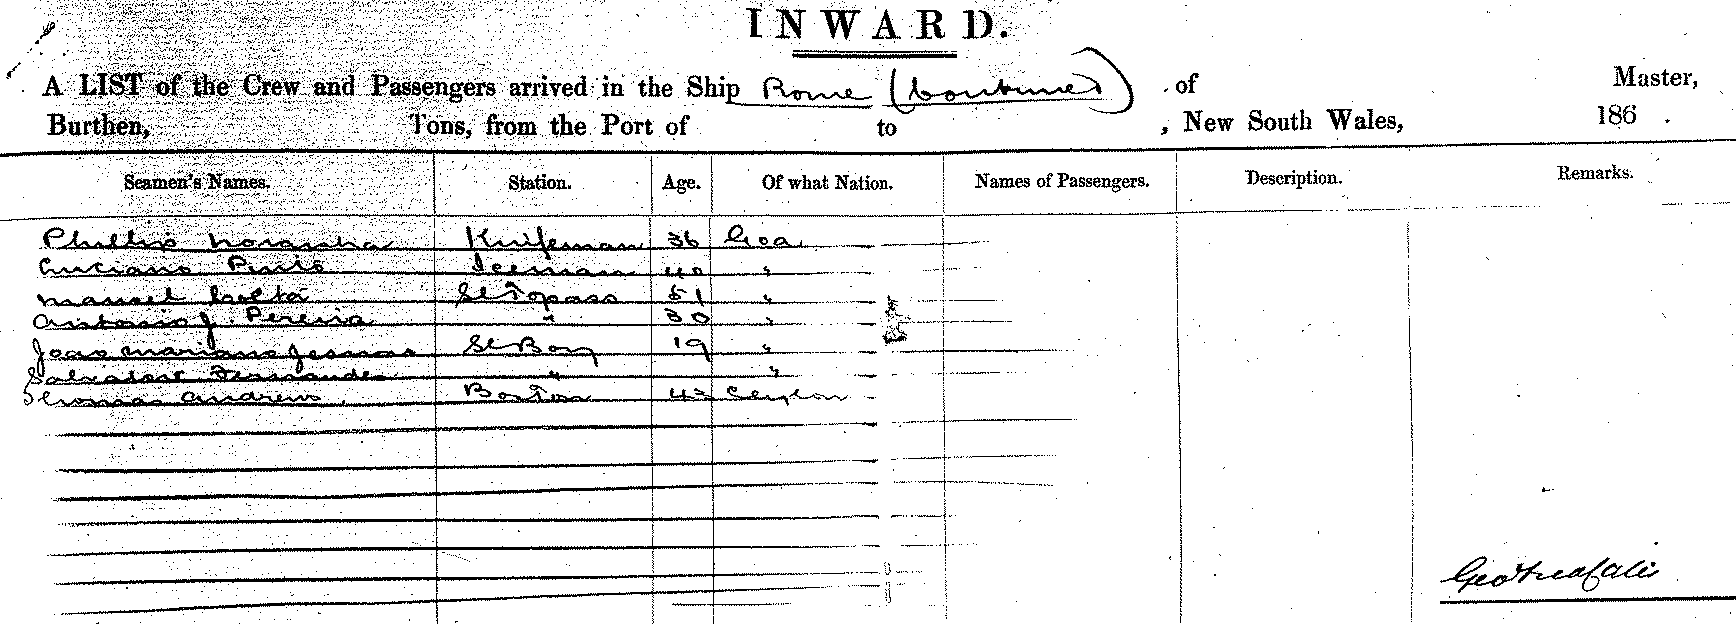 INWARD.
A LIST of the Crew and Passengers arrived in the Ship Rome (Continued) of Master,
Burthen, Tons, from the Port of to , New South Wales, 186 .
Seamen's Names. Station. Age. Of what Nation. Names of Passengers. Description. Remarks.
Phillip Noronha Knifeman 36 Goa
Luciano Pinto Iceman 40 "
Manoel Costa St Topass 51 "
Antonio J. Pereira " 30 "
Joao Mariano St Boy 19 "
Salvador Fernandes " "
Thomas Andrews Boston 43 Ceylon